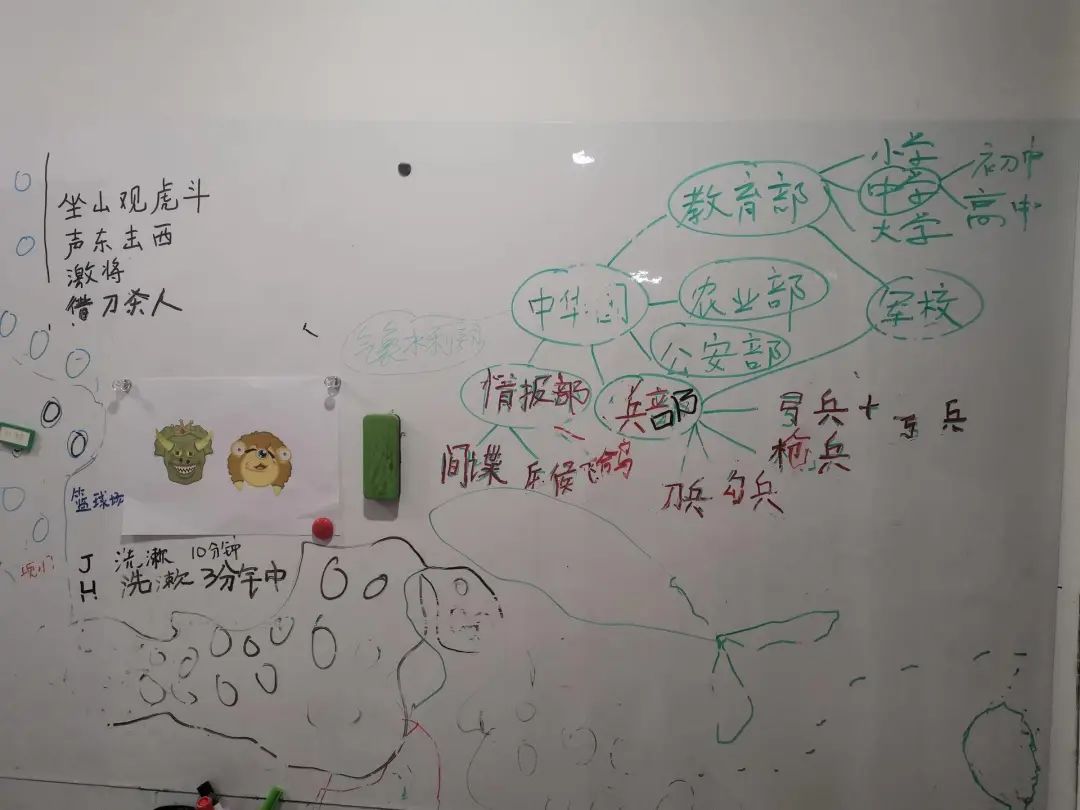 坐山观虎斗
声东击西
激将
借刀杀人
篮球场
J 洗漱 10分钟
H 洗漱 3分钟
教育部
小学
中学
大学
初中
高中
中华国
农业部
军校
公安部
气象水利部
情报部
兵部
间谍
飞鸽
弓兵+
枪兵
刀兵
兵